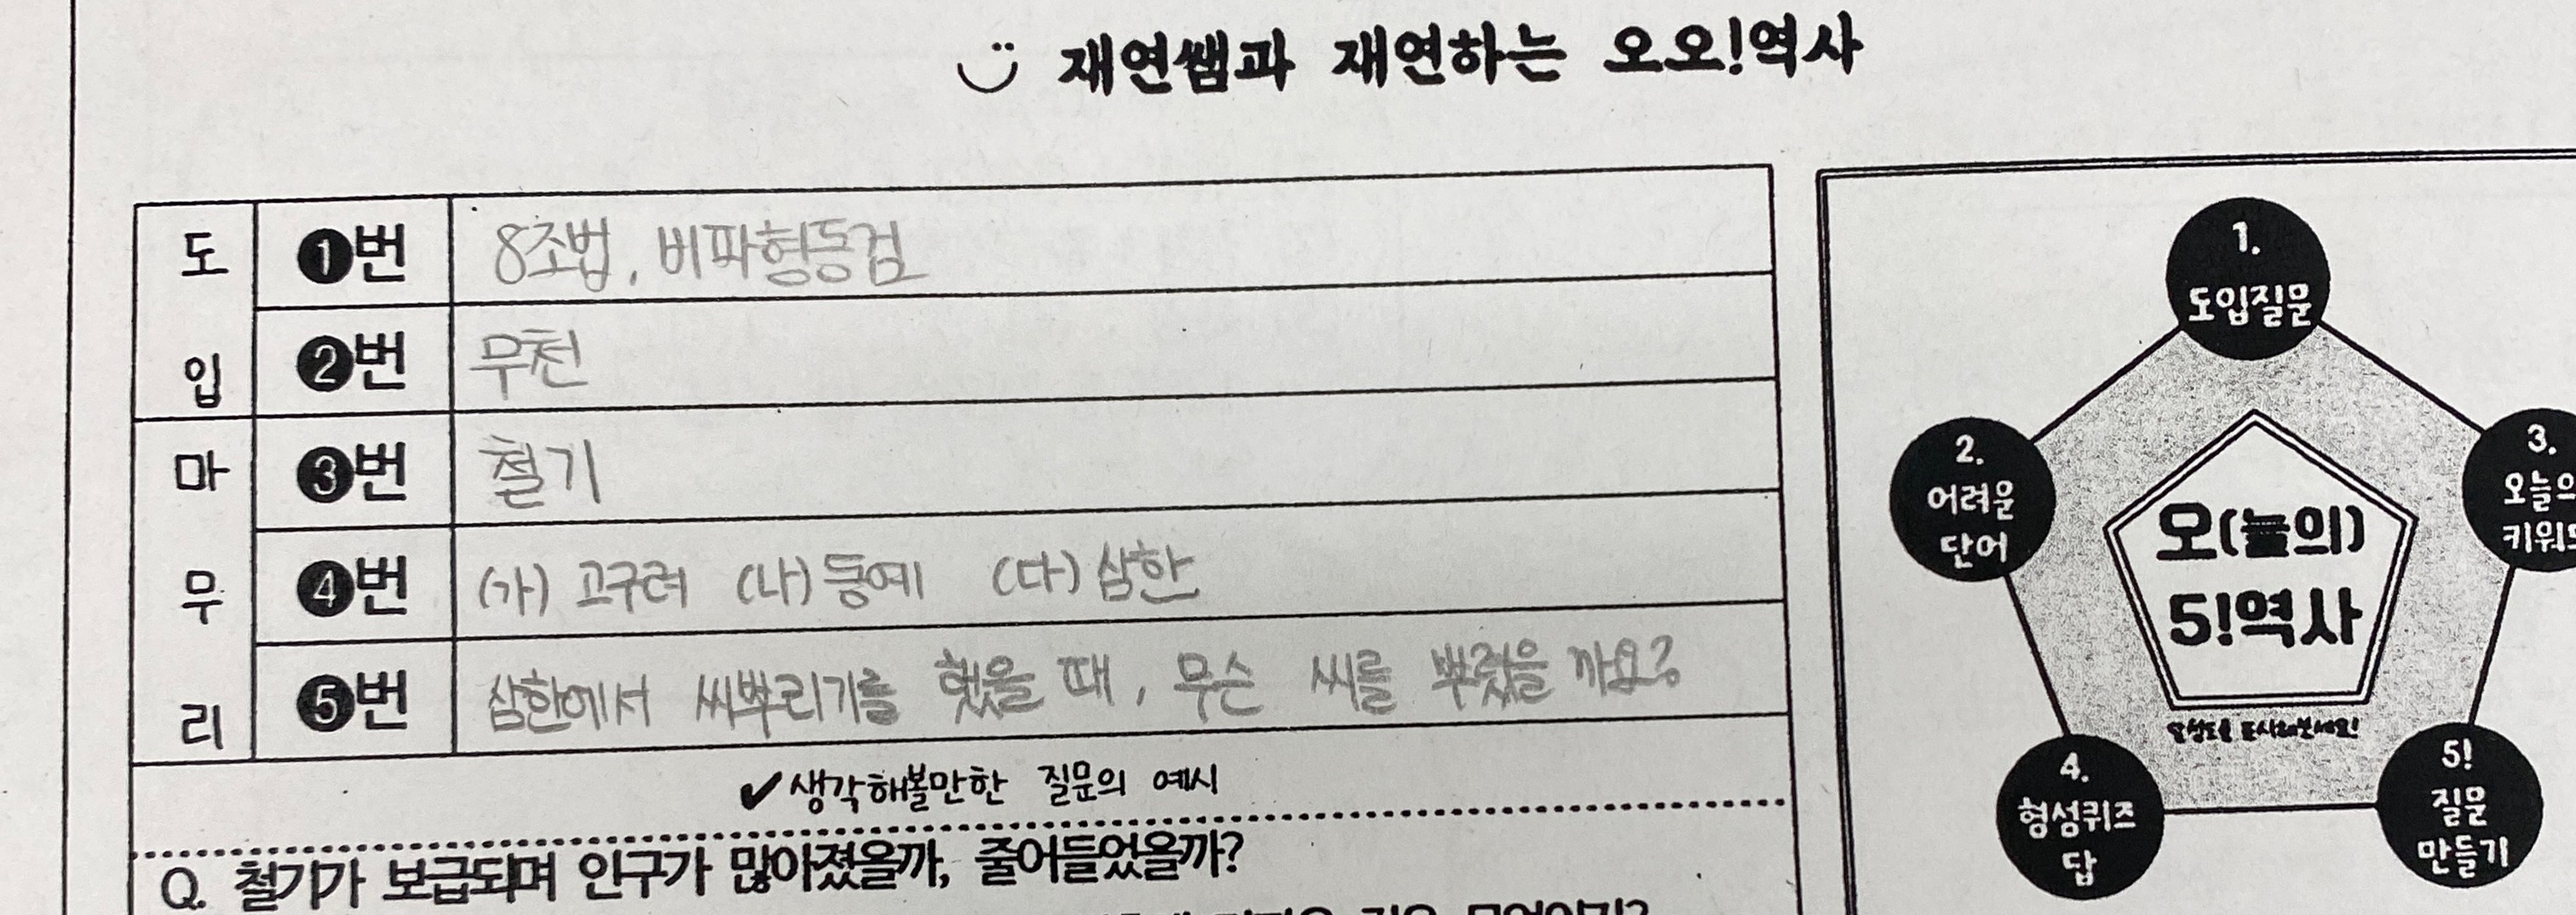 재연쌤과 재연하는 오오!역사
도입
❶번 8조법, 비파형동검
❷번 무천
마무리
❸번 철기
❹번 (가) 고구려 (나) 동예 (다) 삼한
❺번 삼한에서 씨뿌리기를 했을 때, 무슨 씨를 뿌렸을 까요?
✔생각해볼만한 질문의 예시
Q. 철기가 보급되며 인구가 많아졌을까, 줄어들었을까?
1.
도입질문
2.
어려운
단어
3.
오늘의
오(늘의)
5!역사
4.
형성퀴즈
답
5!
질문
만들기